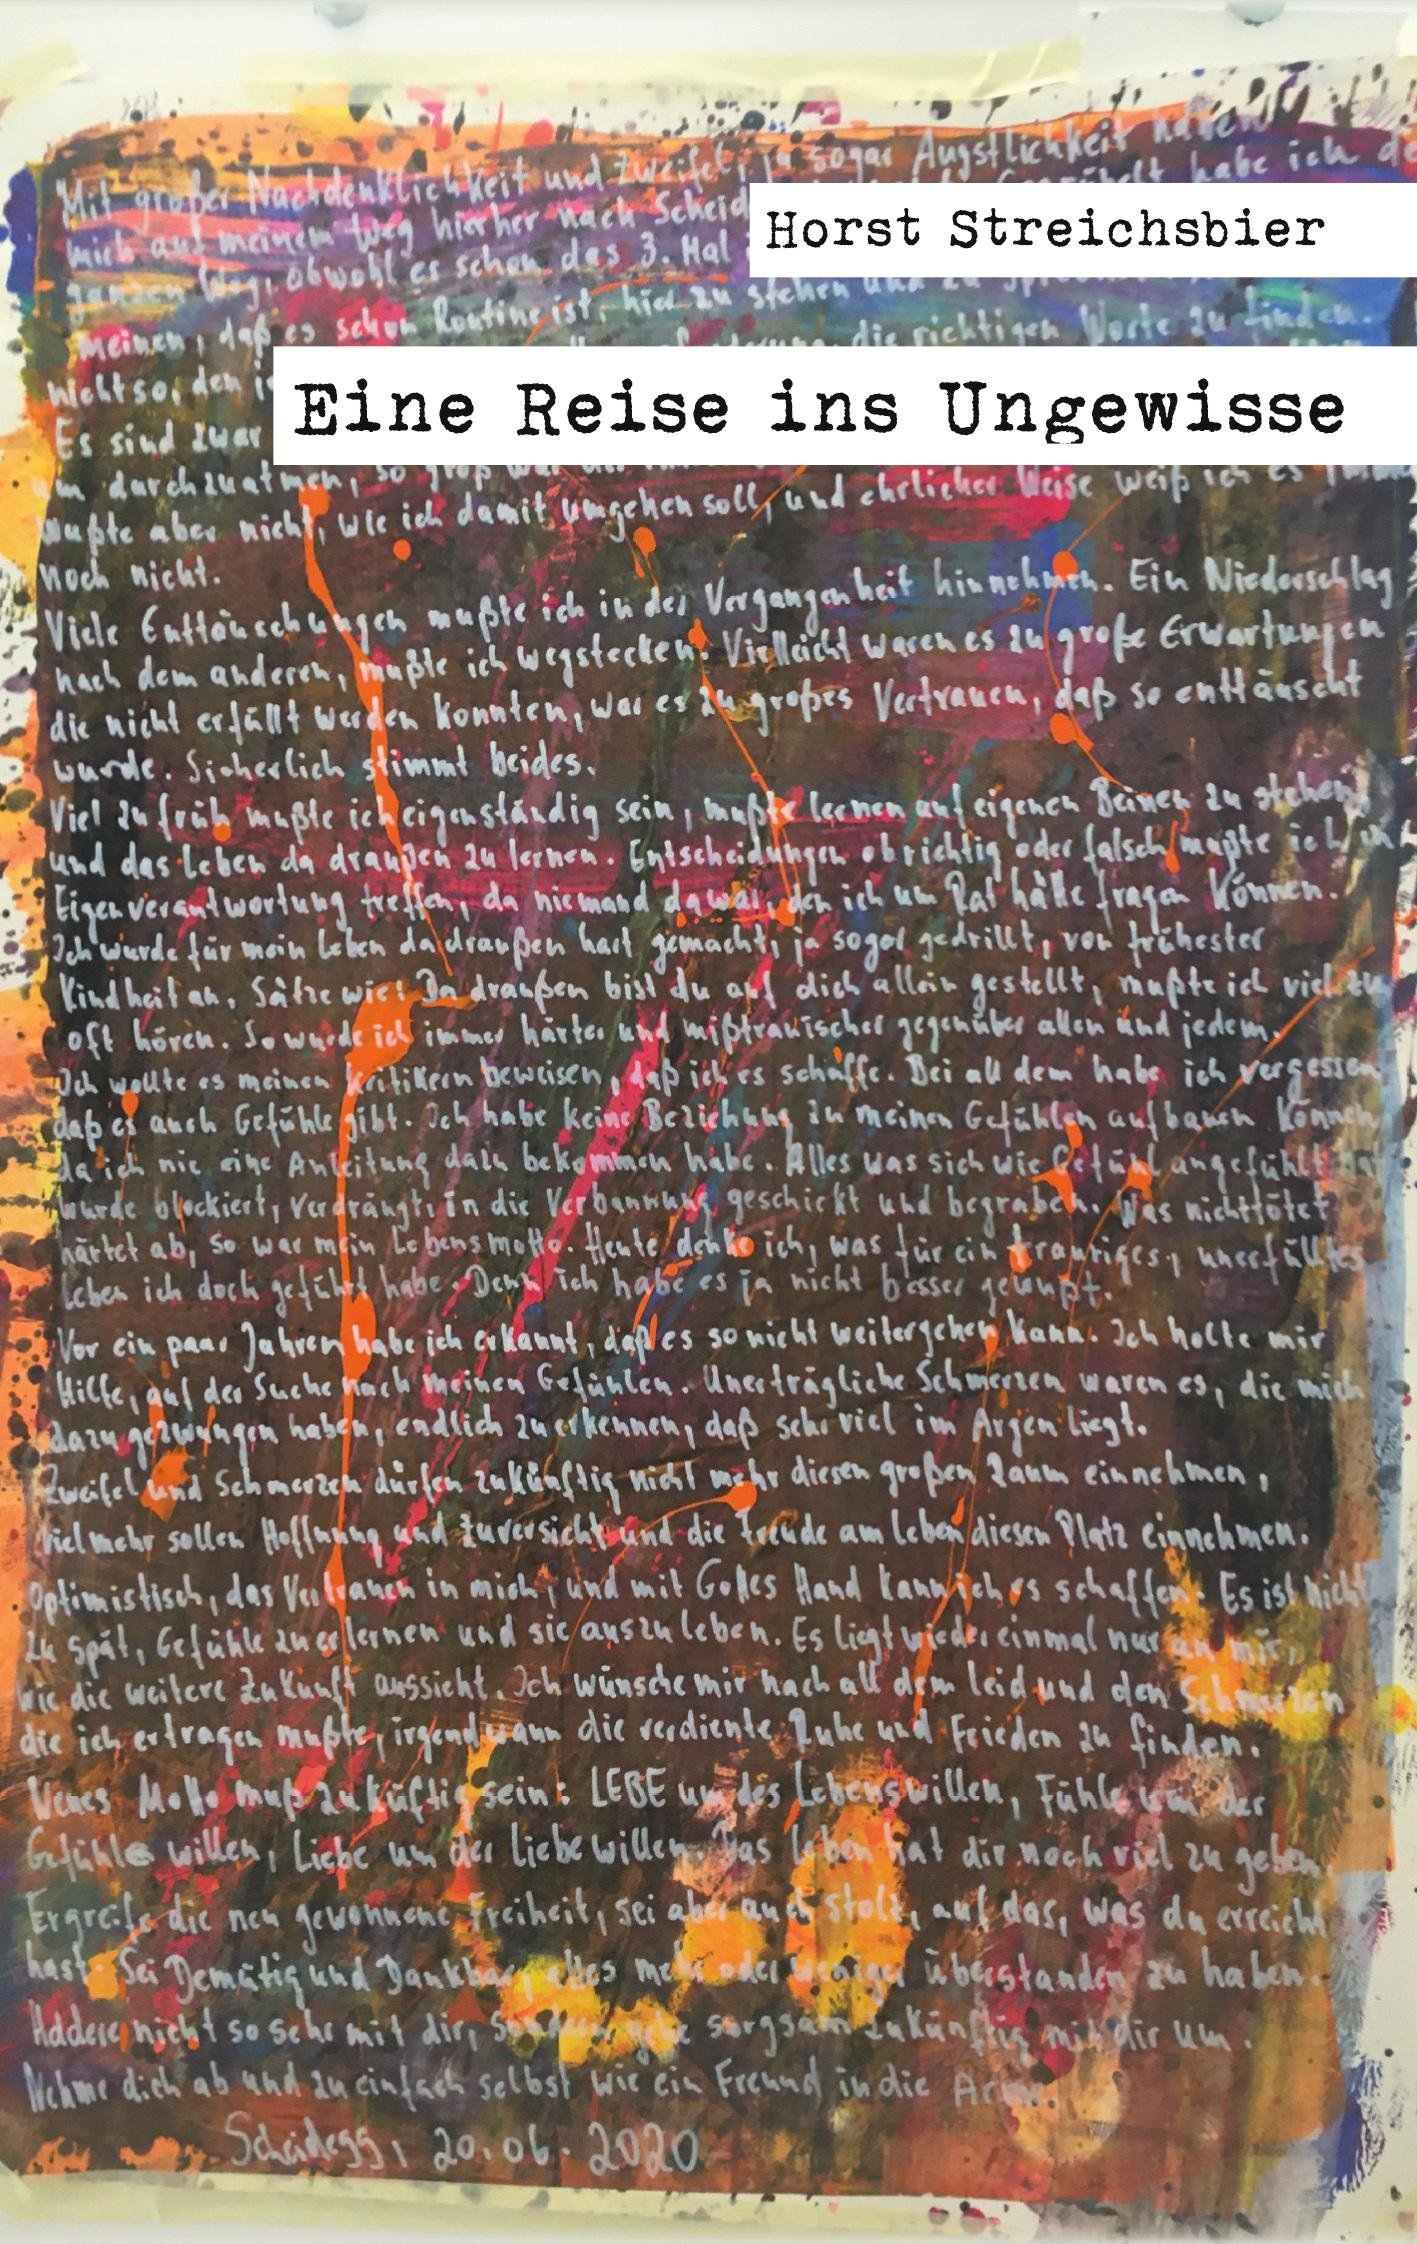 Mit großer Nachdenklichkeit und Zweifel, ja sogar Ängstlichkeit haben
mich auf meinem Weg hierher nach Scheid habe ich de
Horst Streichsbier
ganzen Weg, obwohl es schon das 3. Mal
meinen, daß es schon Routine ist, hier zu stehen und zu
nicht so, den i die richtigen Worte zu finden.
Eine Reise ins Ungewisse
Es sind zwar
um durchzuatmen, so groß war
wußte aber nicht, wie ich damit umgehen soll, und ehrlicher Weise weiß ich es
noch nicht.
Viele Enttäuschungen mußte ich in der Vergangenheit hinnehmen. Ein Niederschlag
nach dem anderen, mußte ich wegstecken. Vielleicht waren es zu große Erwartungen
die nicht erfüllt werden konnten, war es zu großes Vertrauen, daß so enttäuscht
wurde. Sicherlich stimmt beides.
Viel zu früh mußte ich eigenständig sein, mußte lernen auf eigenen Beinen zu stehen,
und das Leben da draußen zu lernen. Entscheidungen ob richtig oder falsch mußte ich in
Eigenverantwortung treffen, da niemand da war, den ich um Rat hätte fragen können.
Ich wurde für mein Leben da draußen hart gemacht, ja sogar gedrillt, von frühester
Kindheit an. Sätze wie: Da draußen bist du auf dich allein gestellt, mußte ich viel zu
oft hören. So wurde ich immer härter und mißtrauischer gegenüber allen und jedem.
Ich wollte es meinen Kritikern beweisen, daß ich es schaffe. Bei all dem habe ich vergessen
daß es auch Gefühle gibt. Ich habe keine Beziehung zu meinen Gefühlen aufbauen können
da ich nie eine Anleitung dazu bekommen habe. Alles was sich wie Gefühl angefühlt hat
wurde blockiert, verdrängt, in die Verbannung geschickt und begraben. Was nicht tötet
härtet ab, so war mein Lebensmotto. Heute denke ich, was für ein trauriges, unerfülltes
Leben ich doch geführt habe. Denn ich habe es ja nicht besser gewußt.
Vor ein paar Jahren habe ich erkannt, daß es so nicht weitergehen kann. Ich holte mir
Hilfe, auf der Suche nach meinen Gefühlen. Unerträgliche Schmerzen waren es, die mich
dazu gezwungen haben, endlich zu erkennen, daß sehr viel im Argen liegt.
Zweifel und Schmerzen dürfen zukünftig nicht mehr diesen großen Raum einnehmen,
vielmehr sollen Hoffnung und Zuversicht und die Freude am Leben diesen Platz einnehmen.
Optimistisch, das Vertrauen in mich, und mit Gottes Hand kann ich es schaffen. Es ist nicht
zu spät, Gefühle zu erlernen und sie auszuleben. Es liegt wieder einmal nur an mir,
wie die weitere Zukunft aussieht. Ich wünsche mir nach all dem Leid und den Schmerzen
die ich ertragen mußte, irgendwann die verdiente Ruhe und Frieden zu finden.
Neues Motto muß zuküftig sein: LEBE um des Lebenswillen, Fühle um der
Gefühle willen, Liebe um der Liebe willen. Das Leben hat dir noch viel zu geben.
Ergreife die neu gewonnene Freiheit, sei aber auch stolz, auf das, was du erreicht
hast. Sei Demütig und Dankbar, alles mehr oder weniger überstanden zu haben.
Hadere nicht so sehr mit dir, sondern gehe sorgsam zukünftig mit dir um.
Nehme dich ab und zu einfach selbst wie ein Freund in die Arme.
Scheidegg, 20.06.2020